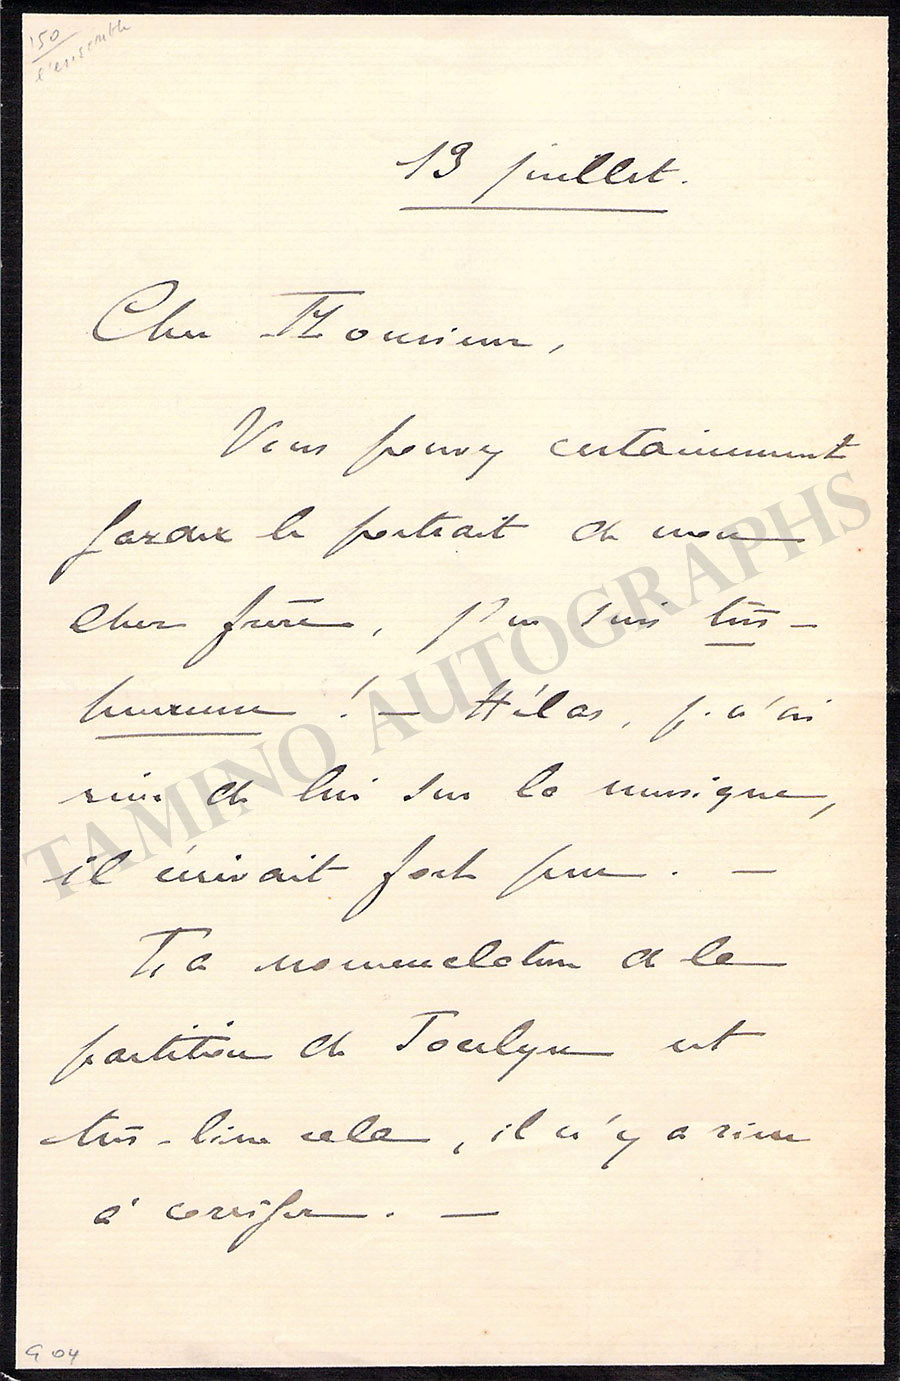 150
l'ensemble
13 juillet.
Cher Monsieur,
Vous pouvez certainement
garder le portrait de mon
cher frère, j'en suis très-
heureuse ! — Hélas, je n'ai
rien de lui sur la musique,
il écrivait fort peu. —
La nomenclature de la
partition de Jocelyn est
très-bien cela, il n'y a rien
à corriger. —
G 04
TAMINO AUTOGRAPHS